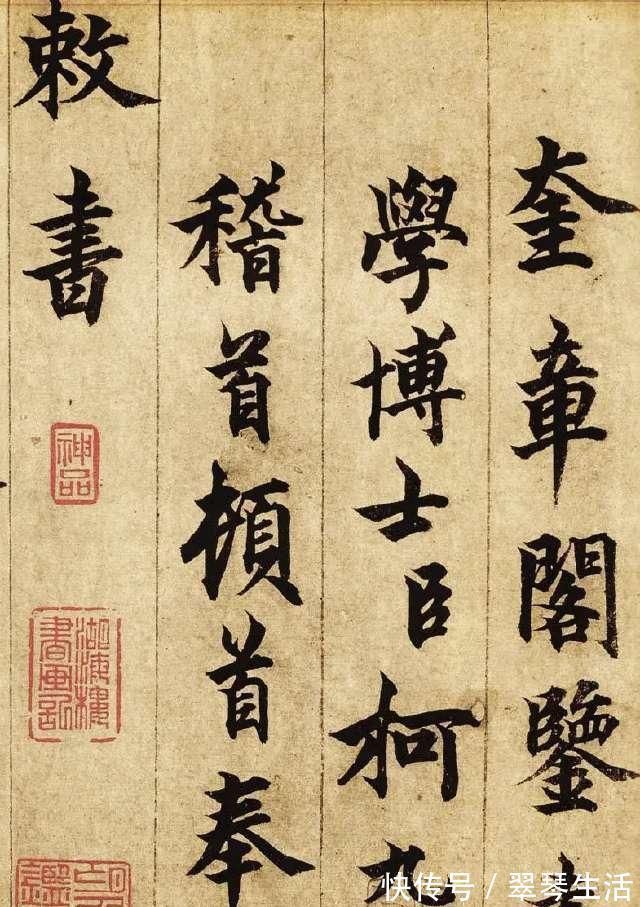 奎章閣鑒
學博士臣柯九
稽首頓首奉
敕書
神品
湖海樓
書畫記
快传号 / 翠琴生活